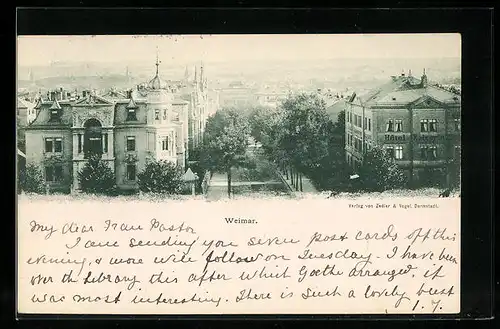 Hôtel
Weimar.
Verlag von Zedler & Vogel, Darmstadt.
My dear Frau Pastor
I am sending you seven post cards off this
evening, & more will follow on Tuesday. I have been
over the Library this after which Goethe arranged, it
was most interesting. There is such a lovely bust